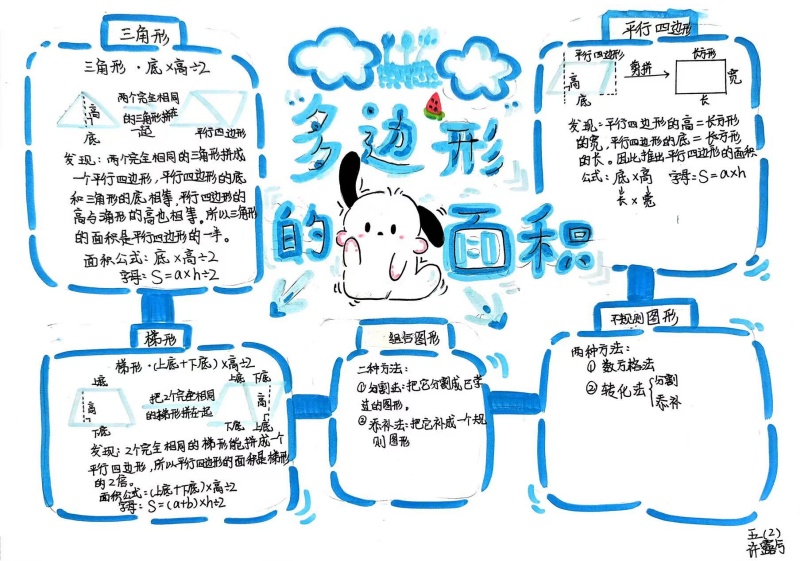 三角形
三角形·底×高÷2
高
底
两个完全相同
的三角形拼在
一起
平行四边形
发现：两个完全相同的三角形拼成
一个平行四边形，平行四边形的底
和三角形的底相等，平行四边形的
高与三角形的高也相等，所以三角形
的面积是平行四边形的一半。
面积公式：底×高÷2
字母：S=a×h÷2
多边形
的面积
平行四边形
平行四边形
高
底
剪拼
长方形
宽
长
发现=平行四边形的高=长方形
的宽，平行四边形的底=长方形
的长。因此推出平行四边形的面积
公式：底×高 字母：S=a×h
长×宽
梯形
梯形·(上底+下底)×高÷2
上底
高
下底
把2个完全相同
的梯形拼在一起
上底 下底
高
下底 上底
发现：2个完全相同的梯形能拼成一个
平行四边形，所以平行四边形的面积是梯形
的2倍。
面积公式：(上底+下底)×高÷2
字母：S=(a+b)×h÷2
组合图形
二种方法：
①分割法：把它分割成已学
过的图形。
②添补法：把它补成一个规
则图形
不规则图形
两种方法：
①数方格法
②转化法{分割
添补
五(2)